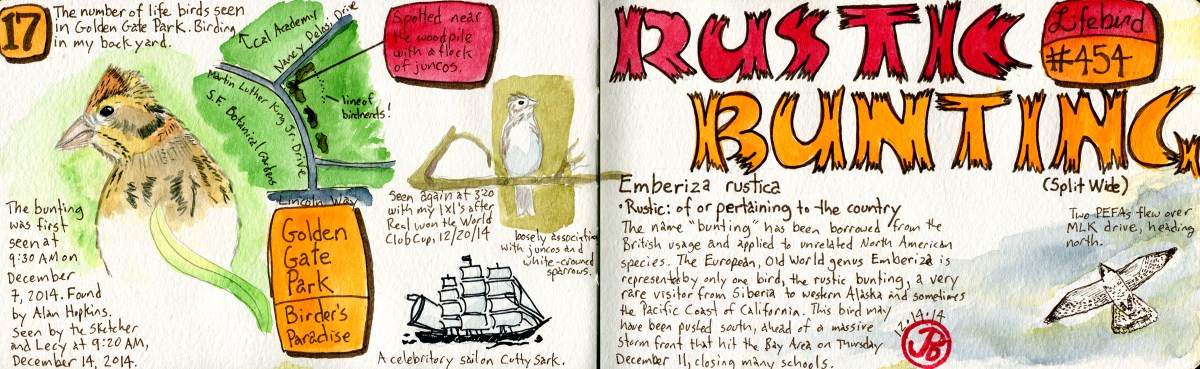 17
The number of life birds seen
in Golden Gate Park. Birding
in my back yard.
Cal Academy
Nancy Pelosi Drive
Martin Luther King Jr. Drive
S.F. Botanical Gardens
line of
birdnerds!
Lincoln Way
Spotted near
the woodpile
with a flock
of juncos.
The bunting
was first
seen at
9:30 AM on
December
7, 2014. Found
by Alan Hopkins.
Seen by the sketcher
and Lecy at 9:20 AM,
December 14, 2014.
Golden
Gate
Park
Birder's
Paradise
Seen again at 3:20
with my 1x1's after
Real won the World
Club Cup, 12/20/14
loosely associating
with juncos and
white-crowned
sparrows.
A celebritory sail on Cutty Sark.
RUSTIC
BUNTING
Lifebird
#454
Emberiza rustica
(Split Wide)
•Rustic: of or pertaining to the country
The name "bunting" has been borrowed from the
British usage and applied to unrelated North American
species. The European, Old World genus Emberiza is
represented by only one bird, the rustic bunting, a very
rare visitor from Siberia to western Alaska and sometimes
the Pacific Coast of California. This bird may
have been pushed south, ahead of a massive
storm front that hit the Bay Area on Thursday
December 11, closing many schools.
12·14·14
Two PEFAs flew over
MLK drive, heading
north.